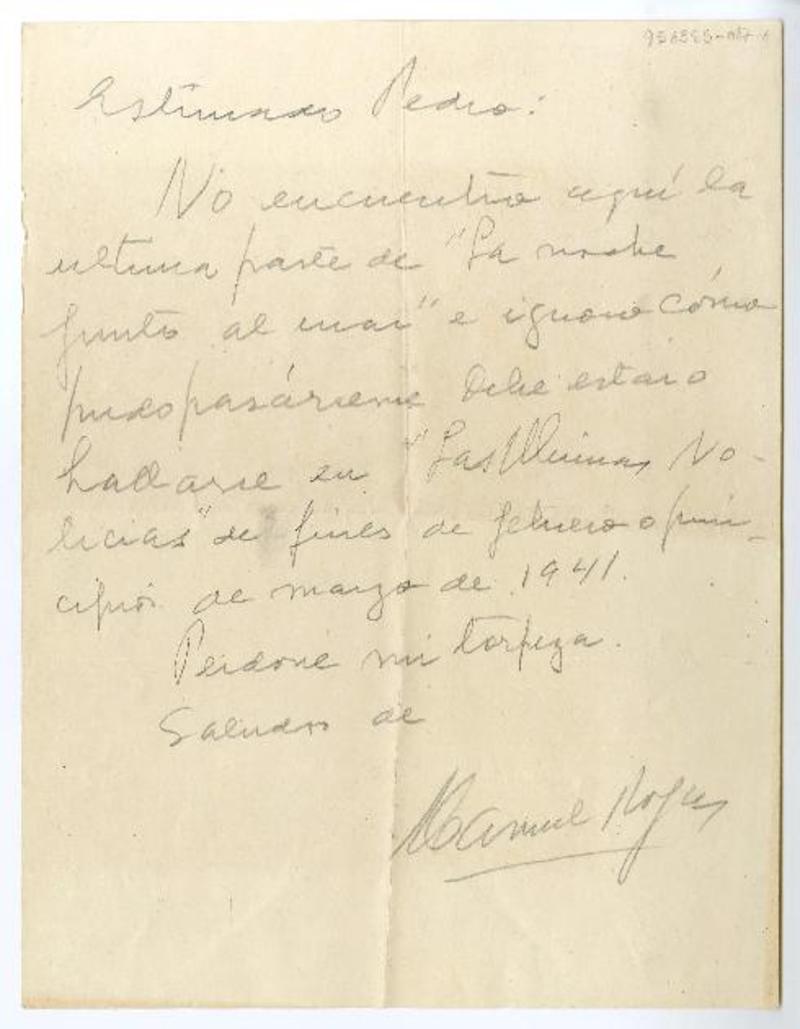 Estimado Pedro:
No encuentro aquí la
ultima parte de "La noche
junto al mar" e ignoro cómo
pudo pasárseme Debe estar o
hallarse en "Las Ultimas No-
ticias" de fines de febrero o prin-
cipios de marzo de 1941.
Perdone mi torpeza.
Saludos de
Manuel Rojas